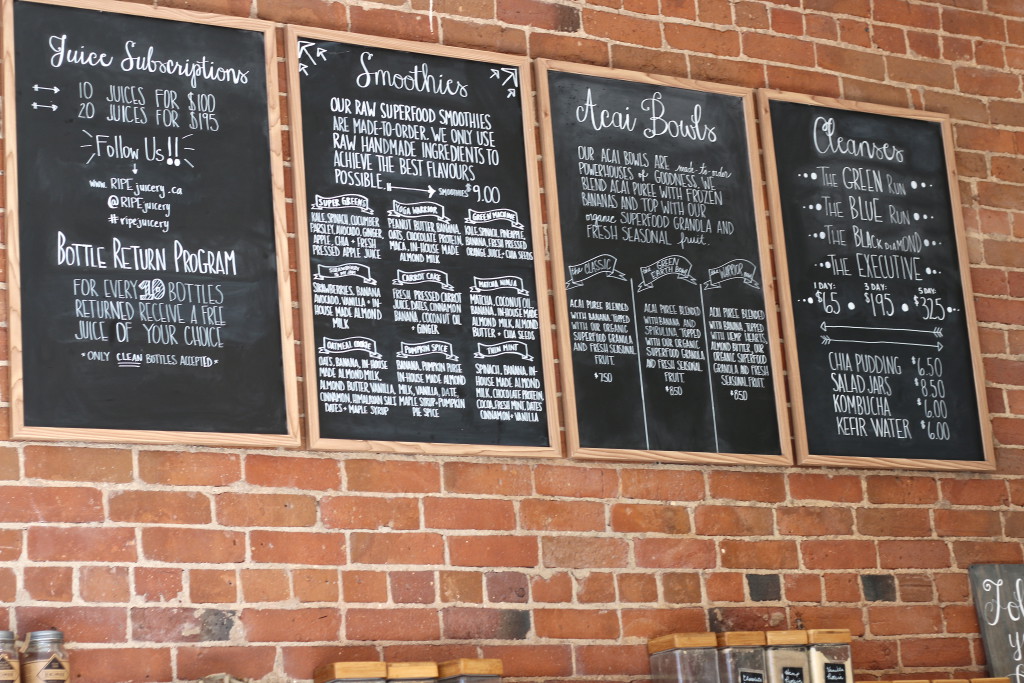 Juice Subscriptions
10 JUICES FOR $100
20 JUICES FOR $195
Follow Us!!
www.RIPEjuicery.ca
@RIPEjuicery
#ripejuicery
BOTTLE RETURN PROGRAM
FOR EVERY 10 BOTTLES
RETURNED RECEIVE A FREE
JUICE OF YOUR CHOICE
*ONLY CLEAN BOTTLES ACCEPTED*
Smoothies
OUR RAW SUPERFOOD SMOOTHIES
ARE MADE-TO-ORDER. WE ONLY USE
RAW HANDMADE INGREDIENTS TO
ACHIEVE THE BEST FLAVOURS
POSSIBLE. SMOOTHIES $9.00
SUPER GREENS
KALE, SPINACH, CUCUMBER
PARSLEY, AVOCADO, GINGER,
APPLE, CHIA + FRESH
PRESSED APPLE JUICE
YOGA WARRIOR
PEANUT BUTTER, BANANA,
OATS, CHOCOLATE PROTEIN,
MACA, IN-HOUSE MADE
ALMOND MILK
GREEN MACHINE
KALE, SPINACH, PINEAPPLE,
BANANA, FRESH PRESSED
ORANGE JUICE + CHIA SEEDS
STRAWBERRIES, BANANA
AVOCADO, VANILLA + IN-
HOUSE MADE ALMOND
MILK
CARROT CAKE
FRESH PRESSED CARROT
JUICE, DATES, CINNAMON
BANANA, COCONUT OIL
+ GINGER
MATCHA NINJA
MATCHA, COCONUT OIL,
BANANA, IN-HOUSE MADE
ALMOND MILK, ALMOND
BUTTER + CHIA SEEDS
OATMEAL COOKIE
OATS, BANANA, IN-HOUSE
MADE ALMOND MILK,
ALMOND BUTTER, VANILLA,
CINNAMON, HIMALAYAN SALT,
DATES + MAPLE SYRUP
PUMPKIN SPICE
BANANA, PUMPKIN PUREE
IN-HOUSE MADE ALMOND
MILK, VANILLA, DATE,
MAPLE SYRUP + PUMPKIN
PIE SPICE
THIN MINT
SPINACH, BANANA, IN-
HOUSE MADE ALMOND
MILK, CHOCOLATE PROTEIN,
COCOA, FRESH MINT, DATES
CINNAMON + VANILLA
Acai Bowls
OUR ACAI BOWLS ARE made-to-order
POWERHOUSES of GOODNESS. WE
BLEND ACAI PUREE WITH FROZEN
BANANAS AND TOP WITH OUR
organic SUPERFOOD GRANOLA AND
FRESH SEASONAL fruit.
THE CLASSIC
ACAI PUREE BLENDED
WITH BANANA TOPPED
WITH OUR ORGANIC
SUPERFOOD GRANOLA
AND FRESH SEASONAL
FRUIT.
$7.50
GREEN
EARTH BOWL
ACAI PUREE, BLENDED
WITH BANANA AND
SPIRULINA TOPPED
WITH OUR ORGANIC
SUPERFOOD GRANOLA
AND FRESH SEASONAL
FRUIT
$8.50
THE WARRIOR
ACAI PUREE BLENDED
WITH BANANA TOPPED
WITH HEMP HEARTS,
ALMOND BUTTER, OUR
ORGANIC SUPERFOOD
GRANOLA AND FRESH
SEASONAL FRUIT.
$8.50
Cleanses
THE GREEN RUN
THE BLUE RUN
THE BLACK DIAMOND
THE EXECUTIVE
1 DAY: 3 DAY: 5 DAY:
$65 $195 $325
CHIA PUDDING $6.50
SALAD JARS $8.50
KOMBUCHA $6.00
KEFIR WATER $6.00